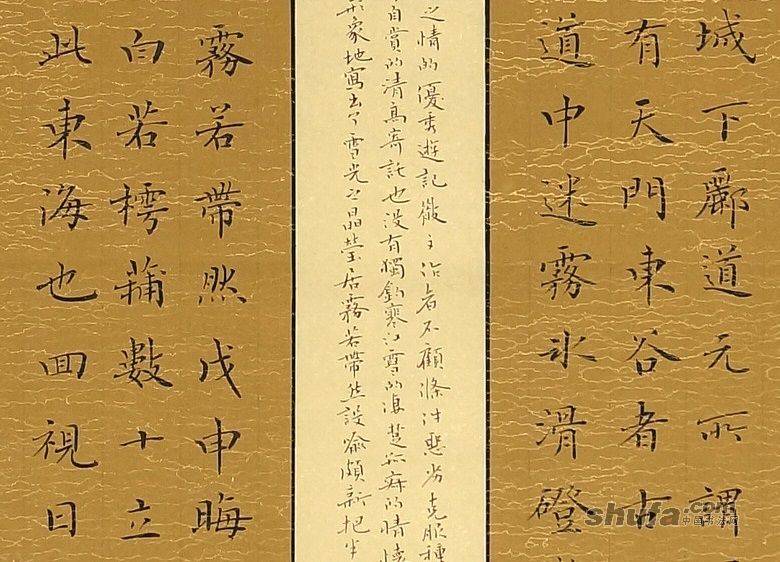 城下酈道元所謂
有天門東谷者古
道中迷霧氷滑磴
之情的優秀遊記 者不顧滌件惡劣克服種
自賞的清高寄託也没有獨釣寒江雪的凄楚孤寂的情懷
象地寫出了雪光之晶瑩居霧若帶然設喻頗新把半
霧若帶然戊申晦
白若樗蒱數十立
此東海也回視日
shufa.com
中国书法网